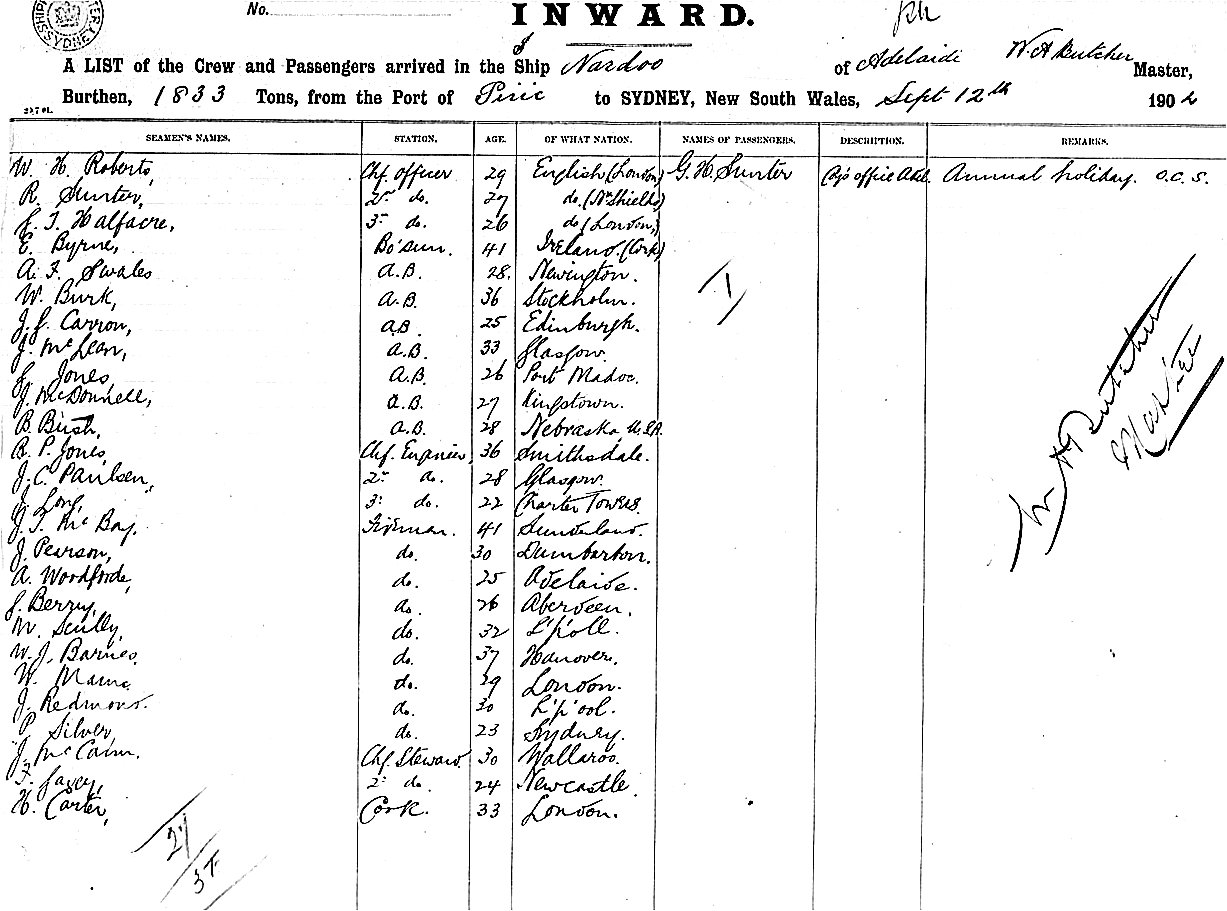 No.
INWARD.
A LIST of the Crew and Passengers arrived in the Ship Nardoo of Adelaide W. A. Butcher Master,
Burthen, 1833 Tons, from the Port of Pirie to SYDNEY, New South Wales, Sept 12th 1902
SEAMEN'S NAMES. STATION. AGE. OF WHAT NATION. NAMES OF PASSENGERS. DESCRIPTION. REMARKS.
W. H. Roberts, Chf. Officer 29 English (London) G. H. Sunter office Adl. Annual holiday. O.C.S.
R. Sunter, 2nd do. 27 do. (Nth Shields)
J. T. Halfacre, 3rd do. 26 do (London,)
E. Byrne, Bo'sun. 41 Ireland. (Cork)
A. F. Swales A.B. 28. Newington.
W. Burk, A.B. 36 Stockholm.
J. J. Carron, AB. 25 Edinburgh.
J. McLean, A.B. 33 Glasgow.
J. Jones A.B. 26 Port Madoc.
J. McDonnell, A.B. 27 Kingstown.
B. Bush, A.B. 28 Nebraska, U.S.A.
R. P. Jones, Chf. Engineer, 36 Smithsdale.
J. C. Paulsen, 2nd do. 28 Glasgow.
J. Long, 3rd do. 22 Charter Towers.
J. T. McBay. Fireman. 41 Sunderland.
J. Pearson, do. 30 Dumbarton.
A. Woodforde, do. 25 Adelaide.
J. Berry, do. 26 Aberdeen.
M. Scully, do. 32 L'poll.
W. J. Barnes. do. 37 Hanover.
W. do. 29 London.
J. Redmond. do. 30 L'p'ool.
P. Silver, do. 23 Sydney.
J. McCann. Chf. Steward. 30 Wallaroo.
F. 2nd do. 24 Newcastle.
H. Carter, Cook. 33 London.
W A Butcher
Master
27